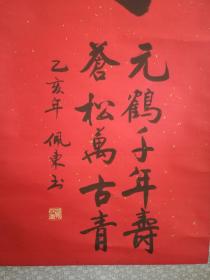 元鶴千年壽
蒼松萬古青
乙亥年 佩東书